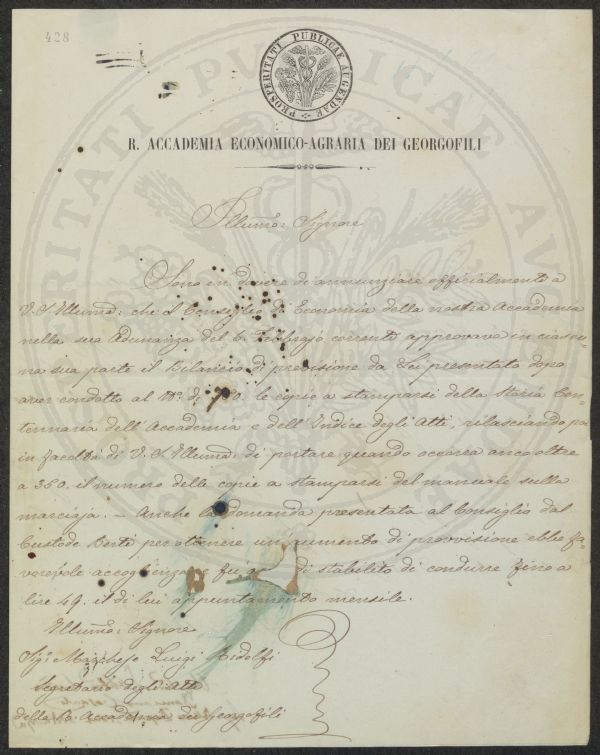 428
PROSPERITATI PUBLICAE AUGENDAE
R. ACCADEMIA ECONOMICO-AGRARIA DEI GEORGOFILI
Illumo: Signore
Sono in dovere di annunziare officialmente a
V. S. Illuma: che il Consiglio di Economia della nostra Accademia
nella sua Adunanza del 6. Febbrajo corrente approvava in ciascu-
na sua parte il Bilancio di previsione da Lei presentato dopo
aver condotto al No. di le copie a stamparsi della Storia Cen-
tennaria dell'Accademia e dell'Indice degli Atti, rilasciando poi
in facoltà di V. S. Illuma: di portare quando occorra anco oltre
a 350. il numero delle copie a stamparsi del manuale sulla
marciaja. — Anche la domanda presentata al Consiglio dal
Custode Berti per ottenere un'aumento di provvisione ebbe fa-
vorevole accoglienza e fu di stabilito di condurre fino a
lire 49. il di lui appuntamento mensile.
Illumo: Signore
Sigr. Marchese Luigi Ridolfi
Segretario degli Atti
della R. Accademia dei Georgofili